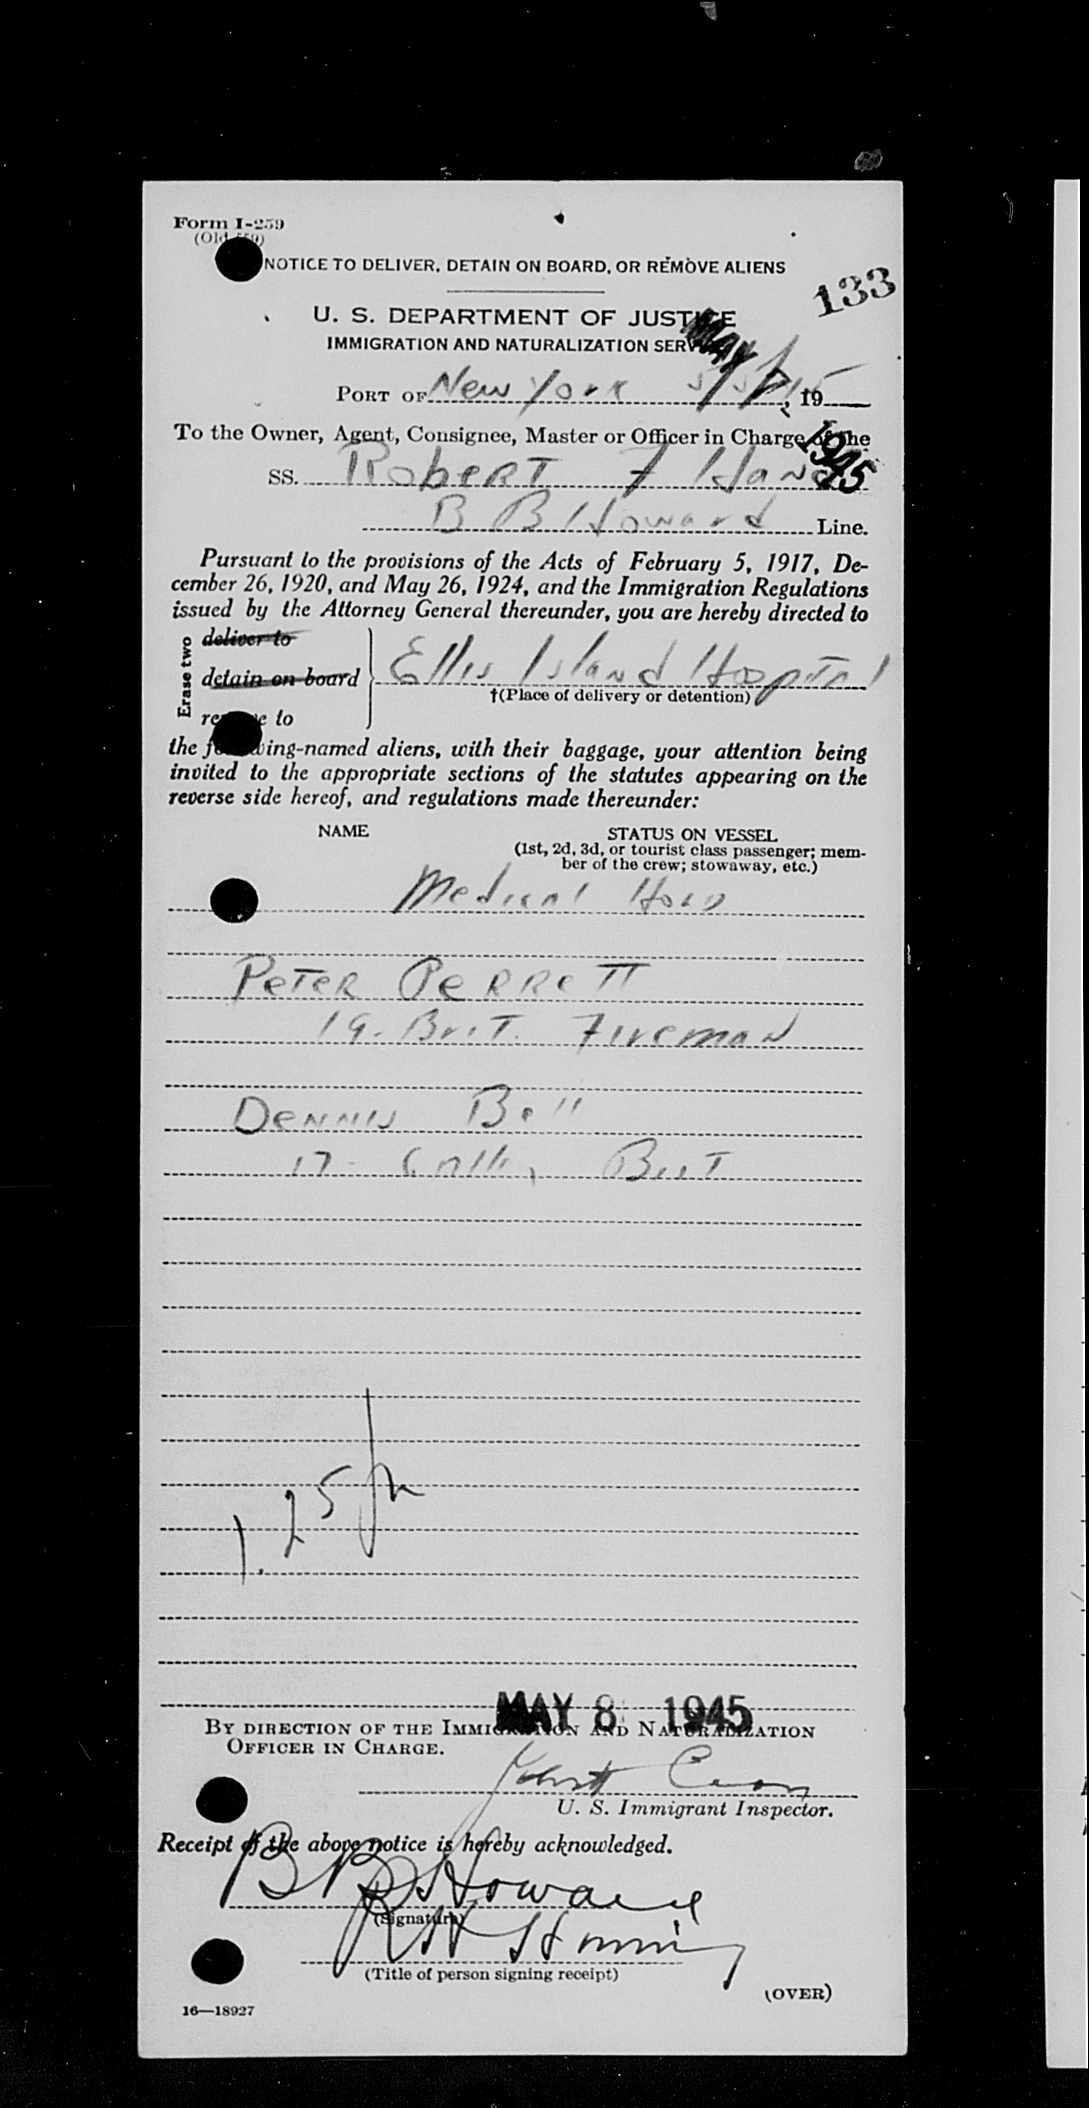 Form I-259
(Old 559)
NOTICE TO DELIVER, DETAIN ON BOARD, OR REMOVE ALIENS
133
U. S. DEPARTMENT OF JUSTICE
IMMIGRATION AND NATURALIZATION SERV
MAY
PORT OF New York 5/5/45, 19
1945
To the Owner, Agent, Consignee, Master or Officer in Charge of the
SS. Robert F Hand
B B Howard Line.
Pursuant to the provisions of the Acts of February 5, 1917, De-
cember 26, 1920, and May 26, 1924, and the Immigration Regulations
issued by the Attorney General thereunder, you are hereby directed to
Erase two
deliver to
detain on board Ellis Island Hospital
†(Place of delivery or detention)
remove to
the following-named aliens, with their baggage, your attention being
invited to the appropriate sections of the statutes appearing on the
reverse side hereof, and regulations made thereunder:
NAME STATUS ON VESSEL
(1st, 2d, 3d, or tourist class passenger; mem-
ber of the crew; stowaway, etc.)
Medical Hold
Peter Perrett
19- Brit. Fireman
Dennis Bell
17- Galley Brit
1.25
MAY 8 1945
BY DIRECTION OF THE IMMIGRATION AND NATURALIZATION
OFFICER IN CHARGE.
U. S. Immigrant Inspector.
Receipt of the above notice is hereby acknowledged.
B B Howard
(Signature)
R H
(Title of person signing receipt)
(OVER)
16—18927